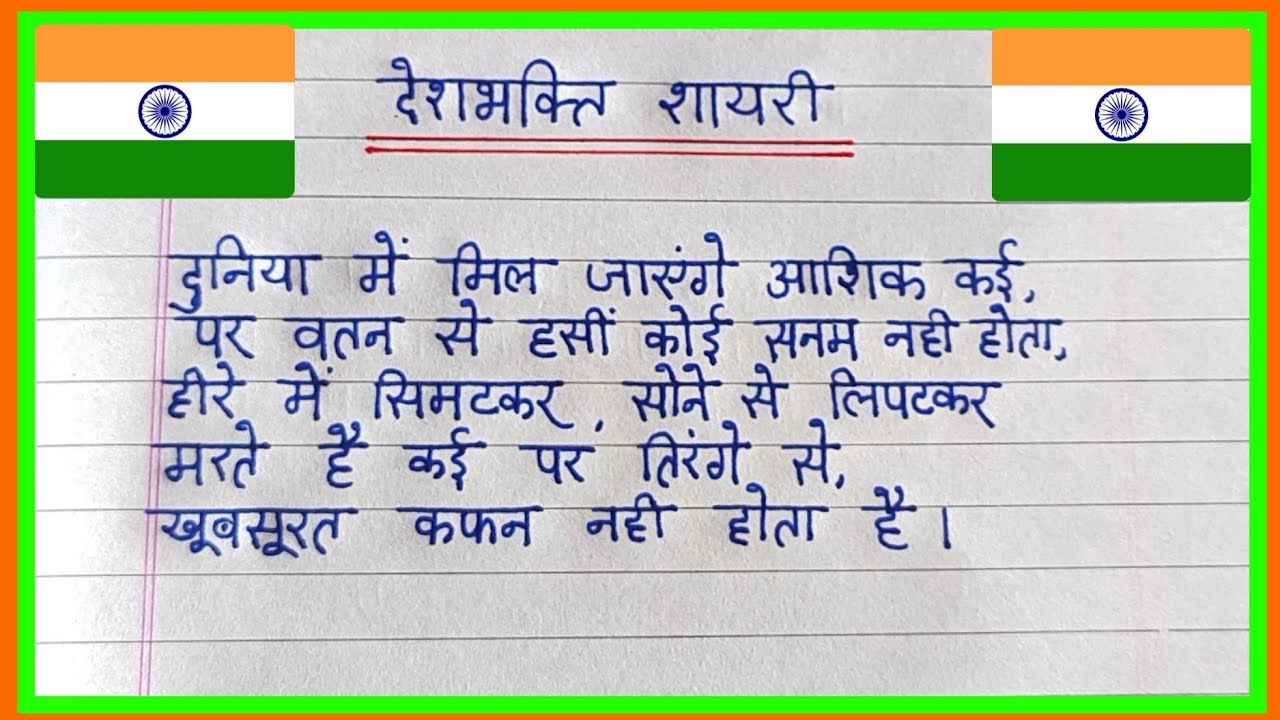 देशभक्ति शायरी
दुनिया में मिल जाएंगे आशिक कई,
पर वतन से हसीं कोई सनम नही होता,
हीरे में सिमटकर, सोने से लिपटकर
मरते है कई पर तिरंगे से,
खूबसूरत कफन नही होता है।